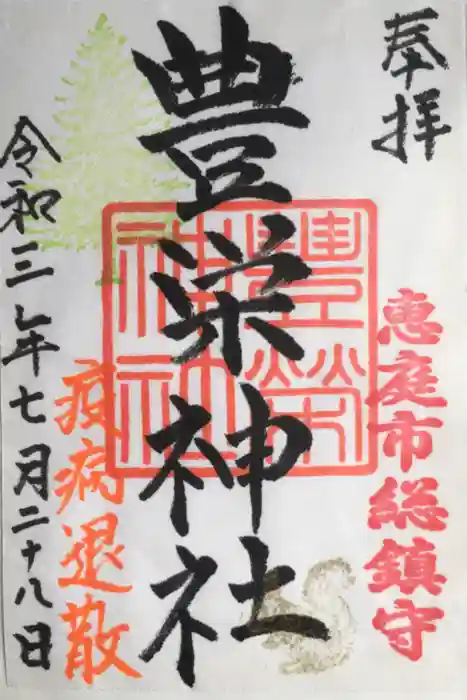 奉拝
恵庭市総鎮守
豊栄神社
豊榮神社
疫病退散
令和三年七月二十八日